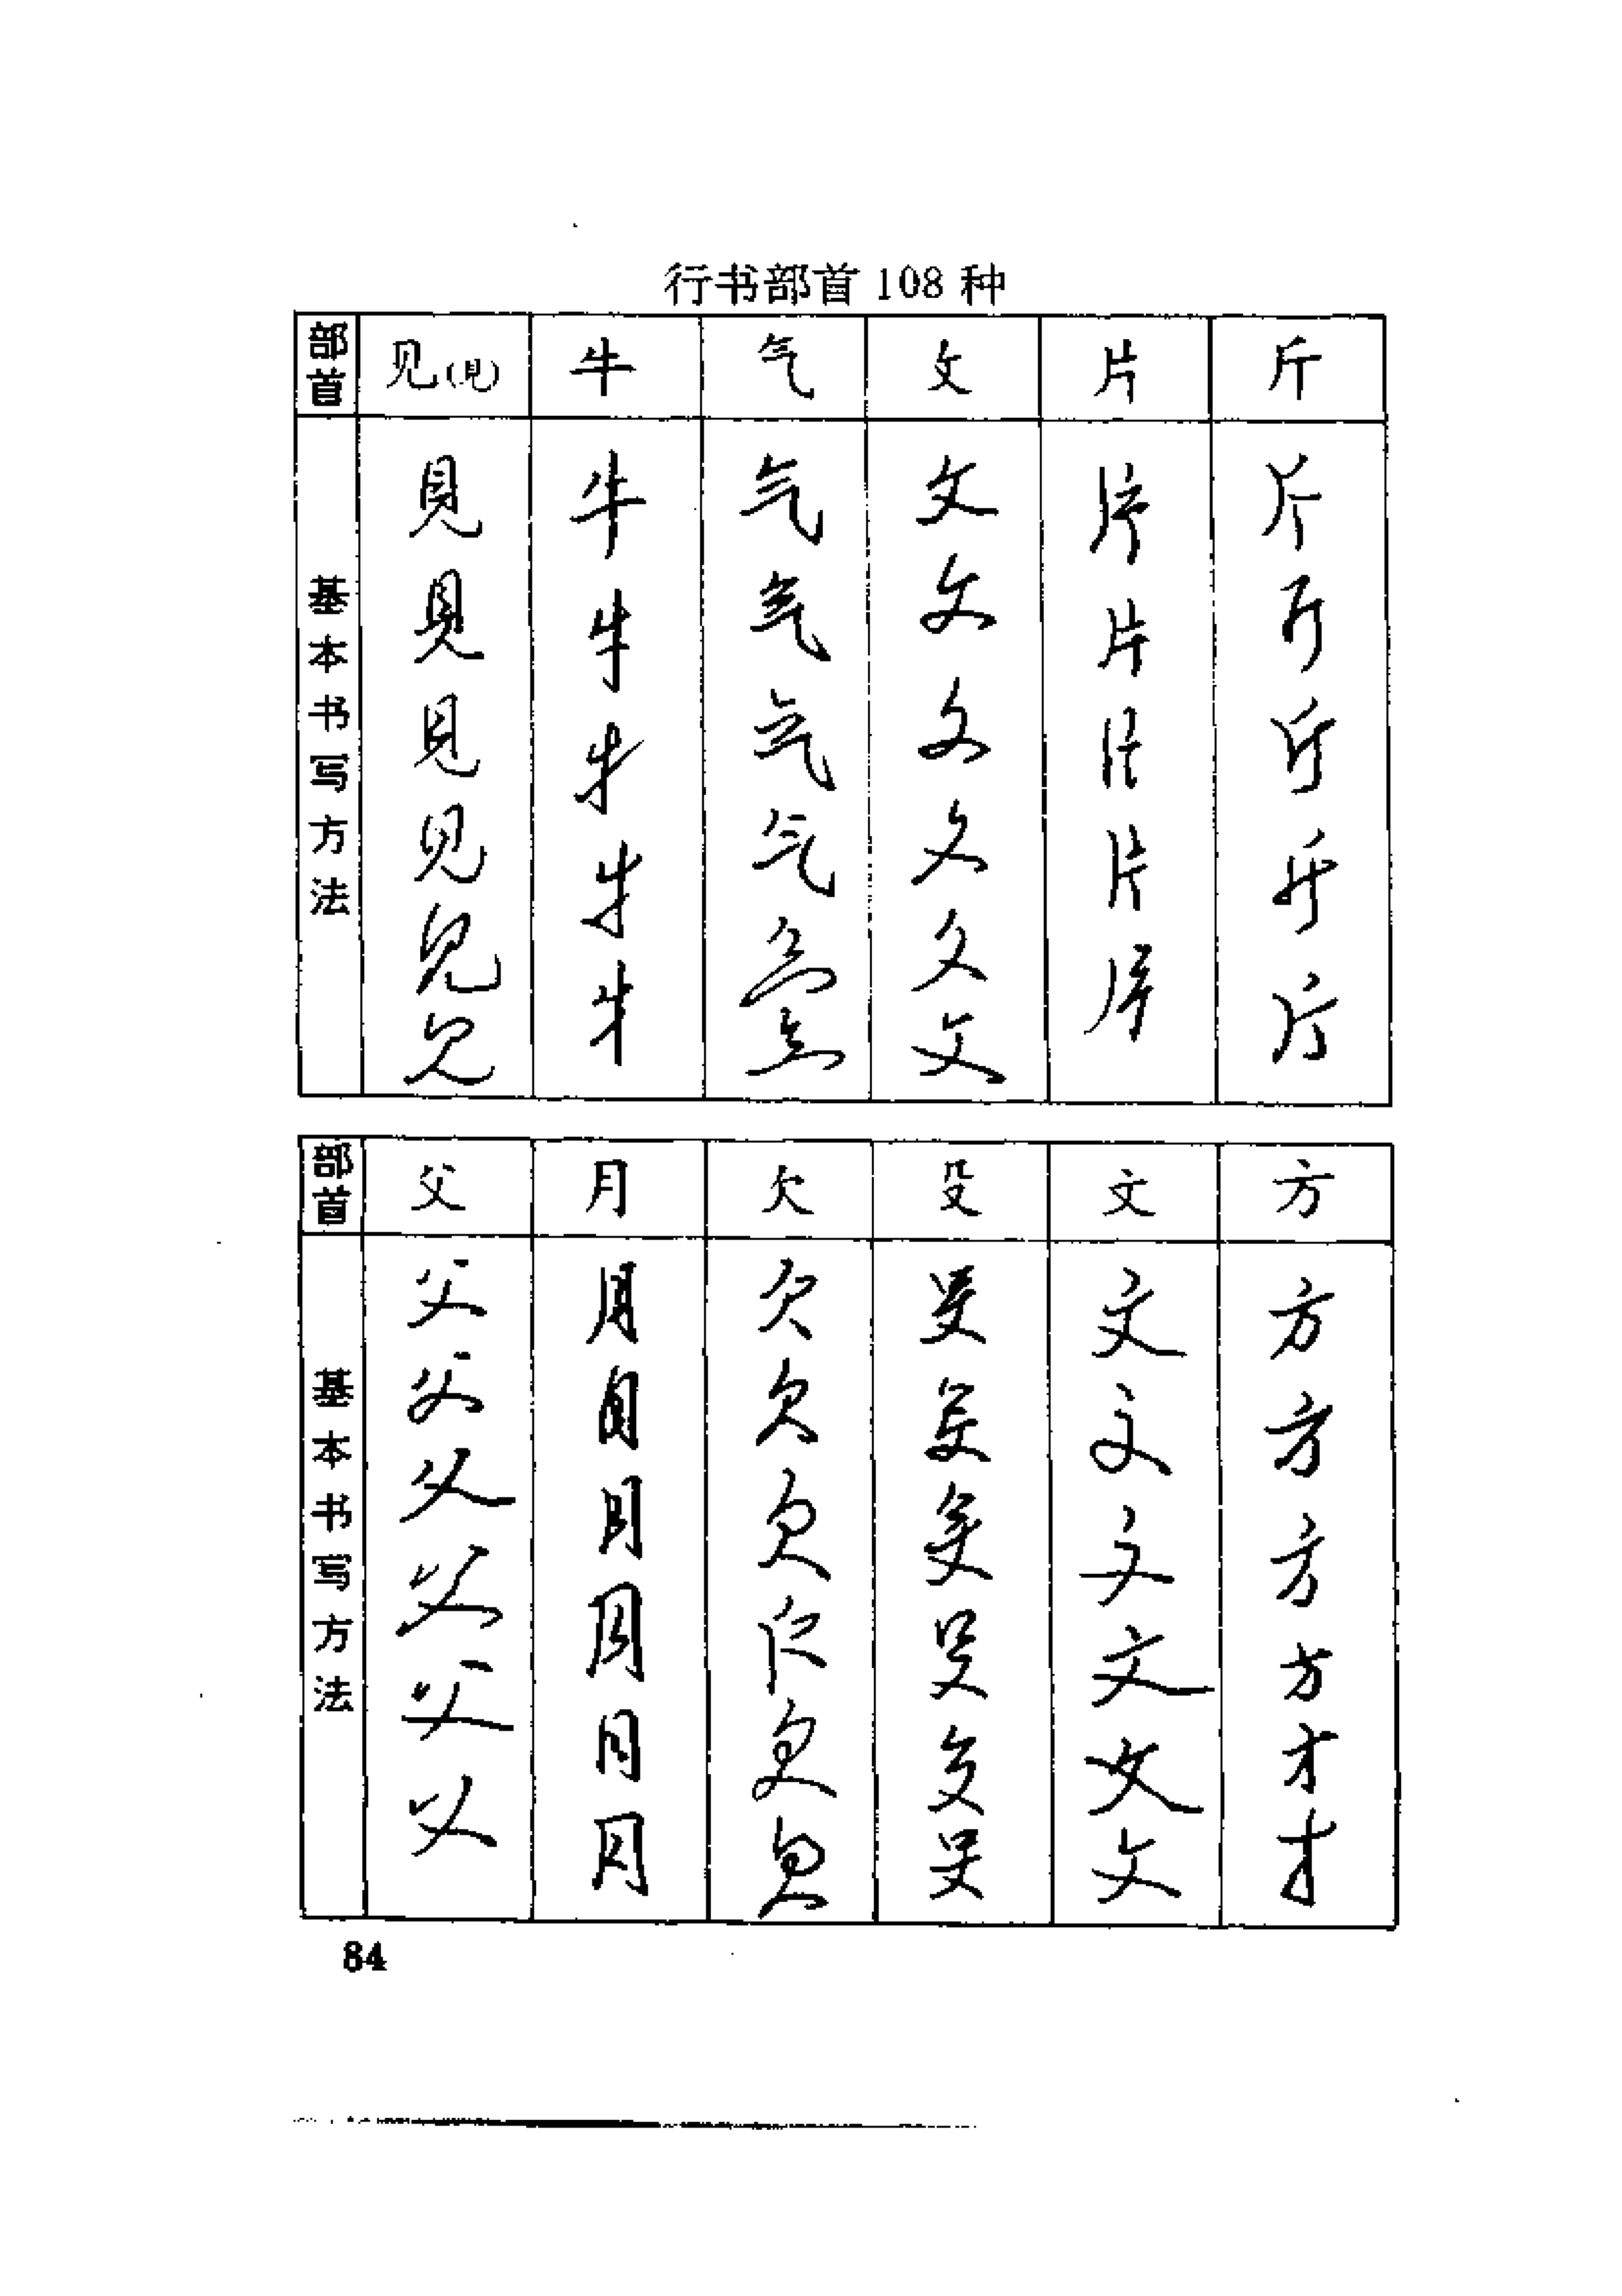 行书部首 108 种
部首 见(見) 牛 气 攵 片 斤
基本书写方法
見 牛 气 攵 片 斤
見 牛 气 攵 片 斤
見 牛 气 攵 片 斤
见 牛 气 攵 片 斤
见 牛 气 攵 片 斤
见 气 攵
部首 父 月 欠 殳 文 方
基本书写方法
父 月 欠 殳 文 方
父 月 欠 殳 文 方
父 月 欠 殳 文 方
父 月 欠 殳 文 方
父 月 欠 殳 文 方
父 月 欠 殳 文 方
84